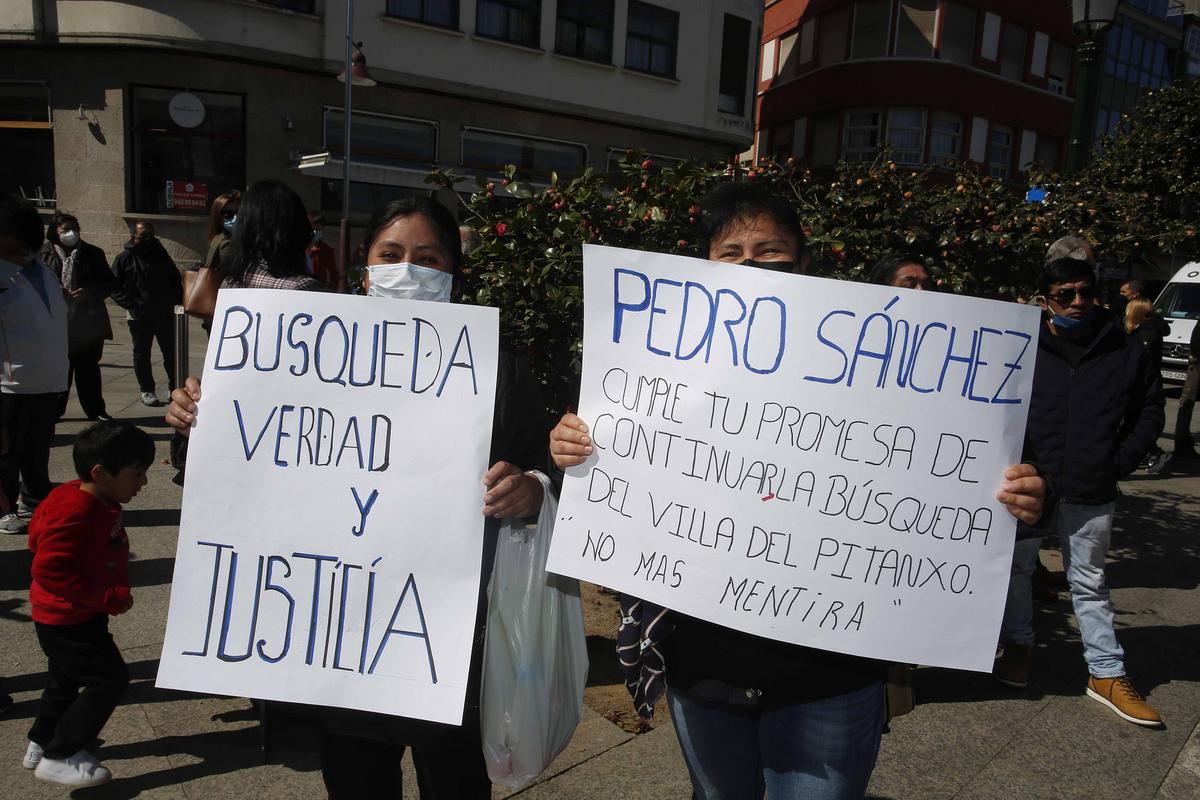 BUSQUEDA
VERDAD
Y
JUSTÍCÍA
PEDRO SÁNCHEZ
CUMPLE TU PROMESA DE
CONTINUAR LA BÚSQUEDA
DEL VILLA DEL PITANXO.
"NO MAS MENTIRA"